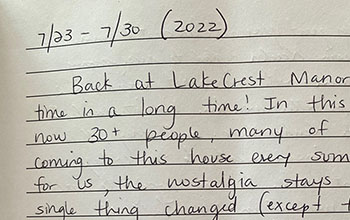 7/23 - 7/30 (2022)
Back at LakeCrest Manor
time in a long time! In this
now 30+ people, many of
coming to this house every sum
for us, the nostalgia stays
single thing changed (except t